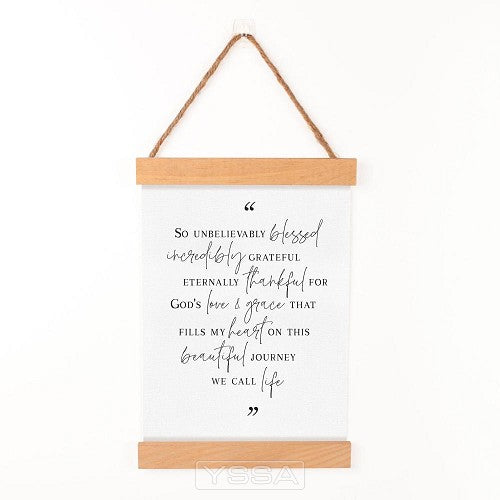 “
So unbelievably blessed
incredibly grateful
eternally thankful for
God's love & grace that
fills my heart on this
beautiful journey
we call life
”
YSSA